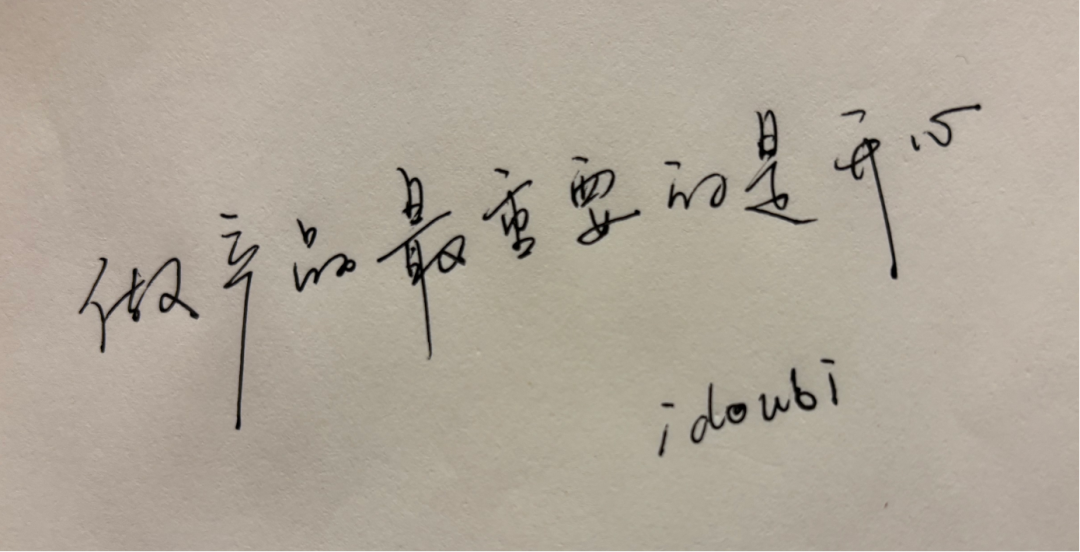 做产品最重要的是开心
idoubi